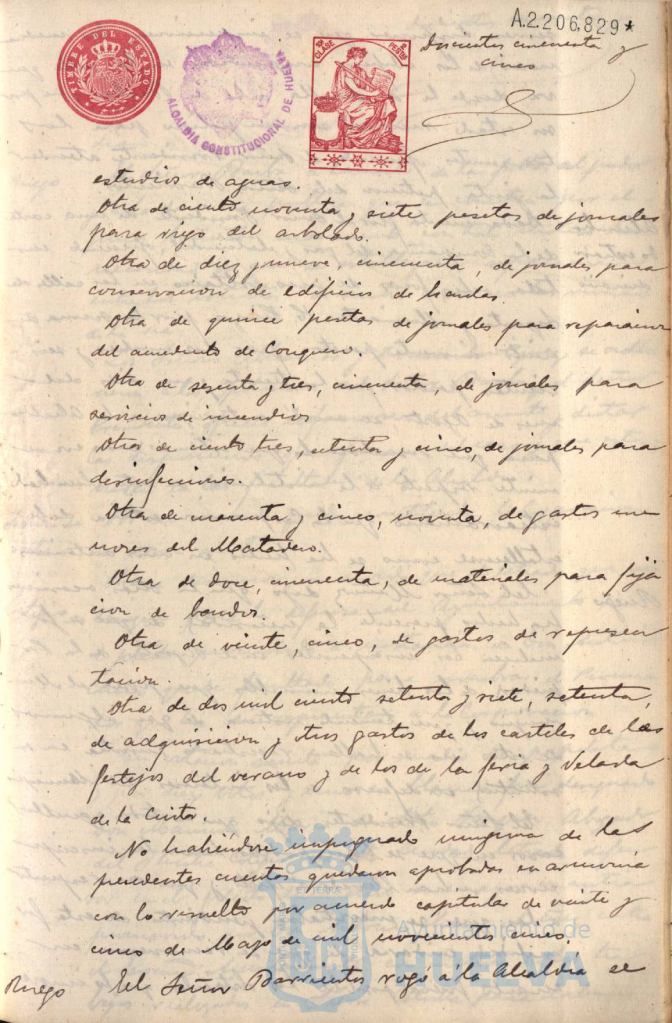 A.2.206.829*
Doscientos cincuenta y
cinco
TIMBRE DEL ESTADO
ALCALDIA CONSTITUCIONAL DE HUELVA
CLASE
PESETAS
estudios de aguas.
Otra de ciento noventa y siete pesetas de jornales
para riego del arbolado.
Otra de diez y nueve, cincuenta, de jornales para
conservacion de edificios de
Otra de quince pesetas de jornales para reparacion
del acueducto de Conquero.
Otra de sesenta y tres, cincuenta, de jornales para
servicios de incendios
Otra de ciento tres, setenta y cinco, de jornales para
desinfecciones.
Otra de cuarenta y cinco, noventa, de gastos me
nores del Matadero.
Otra de doce, cincuenta, de materiales para fija
cion de bandos.
Otra de veinte, cinco, de gastos de represen
tacion.
Otra de dos mil ciento setenta y siete, setenta,
de adquisicion y otros gastos de los carteles de los
festejos del verano y de los de la feria y Velada
de la Cinta.
No habiéndose impugnado ninguna de las
precedentes cuentas quedaron aprobadas en armonia
con lo resuelto por acuerdo capitular de veinte y
cinco de Mayo de mil novecientos cinco.
Ruego El Señor Barrientos rogó á la Alcaldia se
Ayuntamiento de
HUELVA